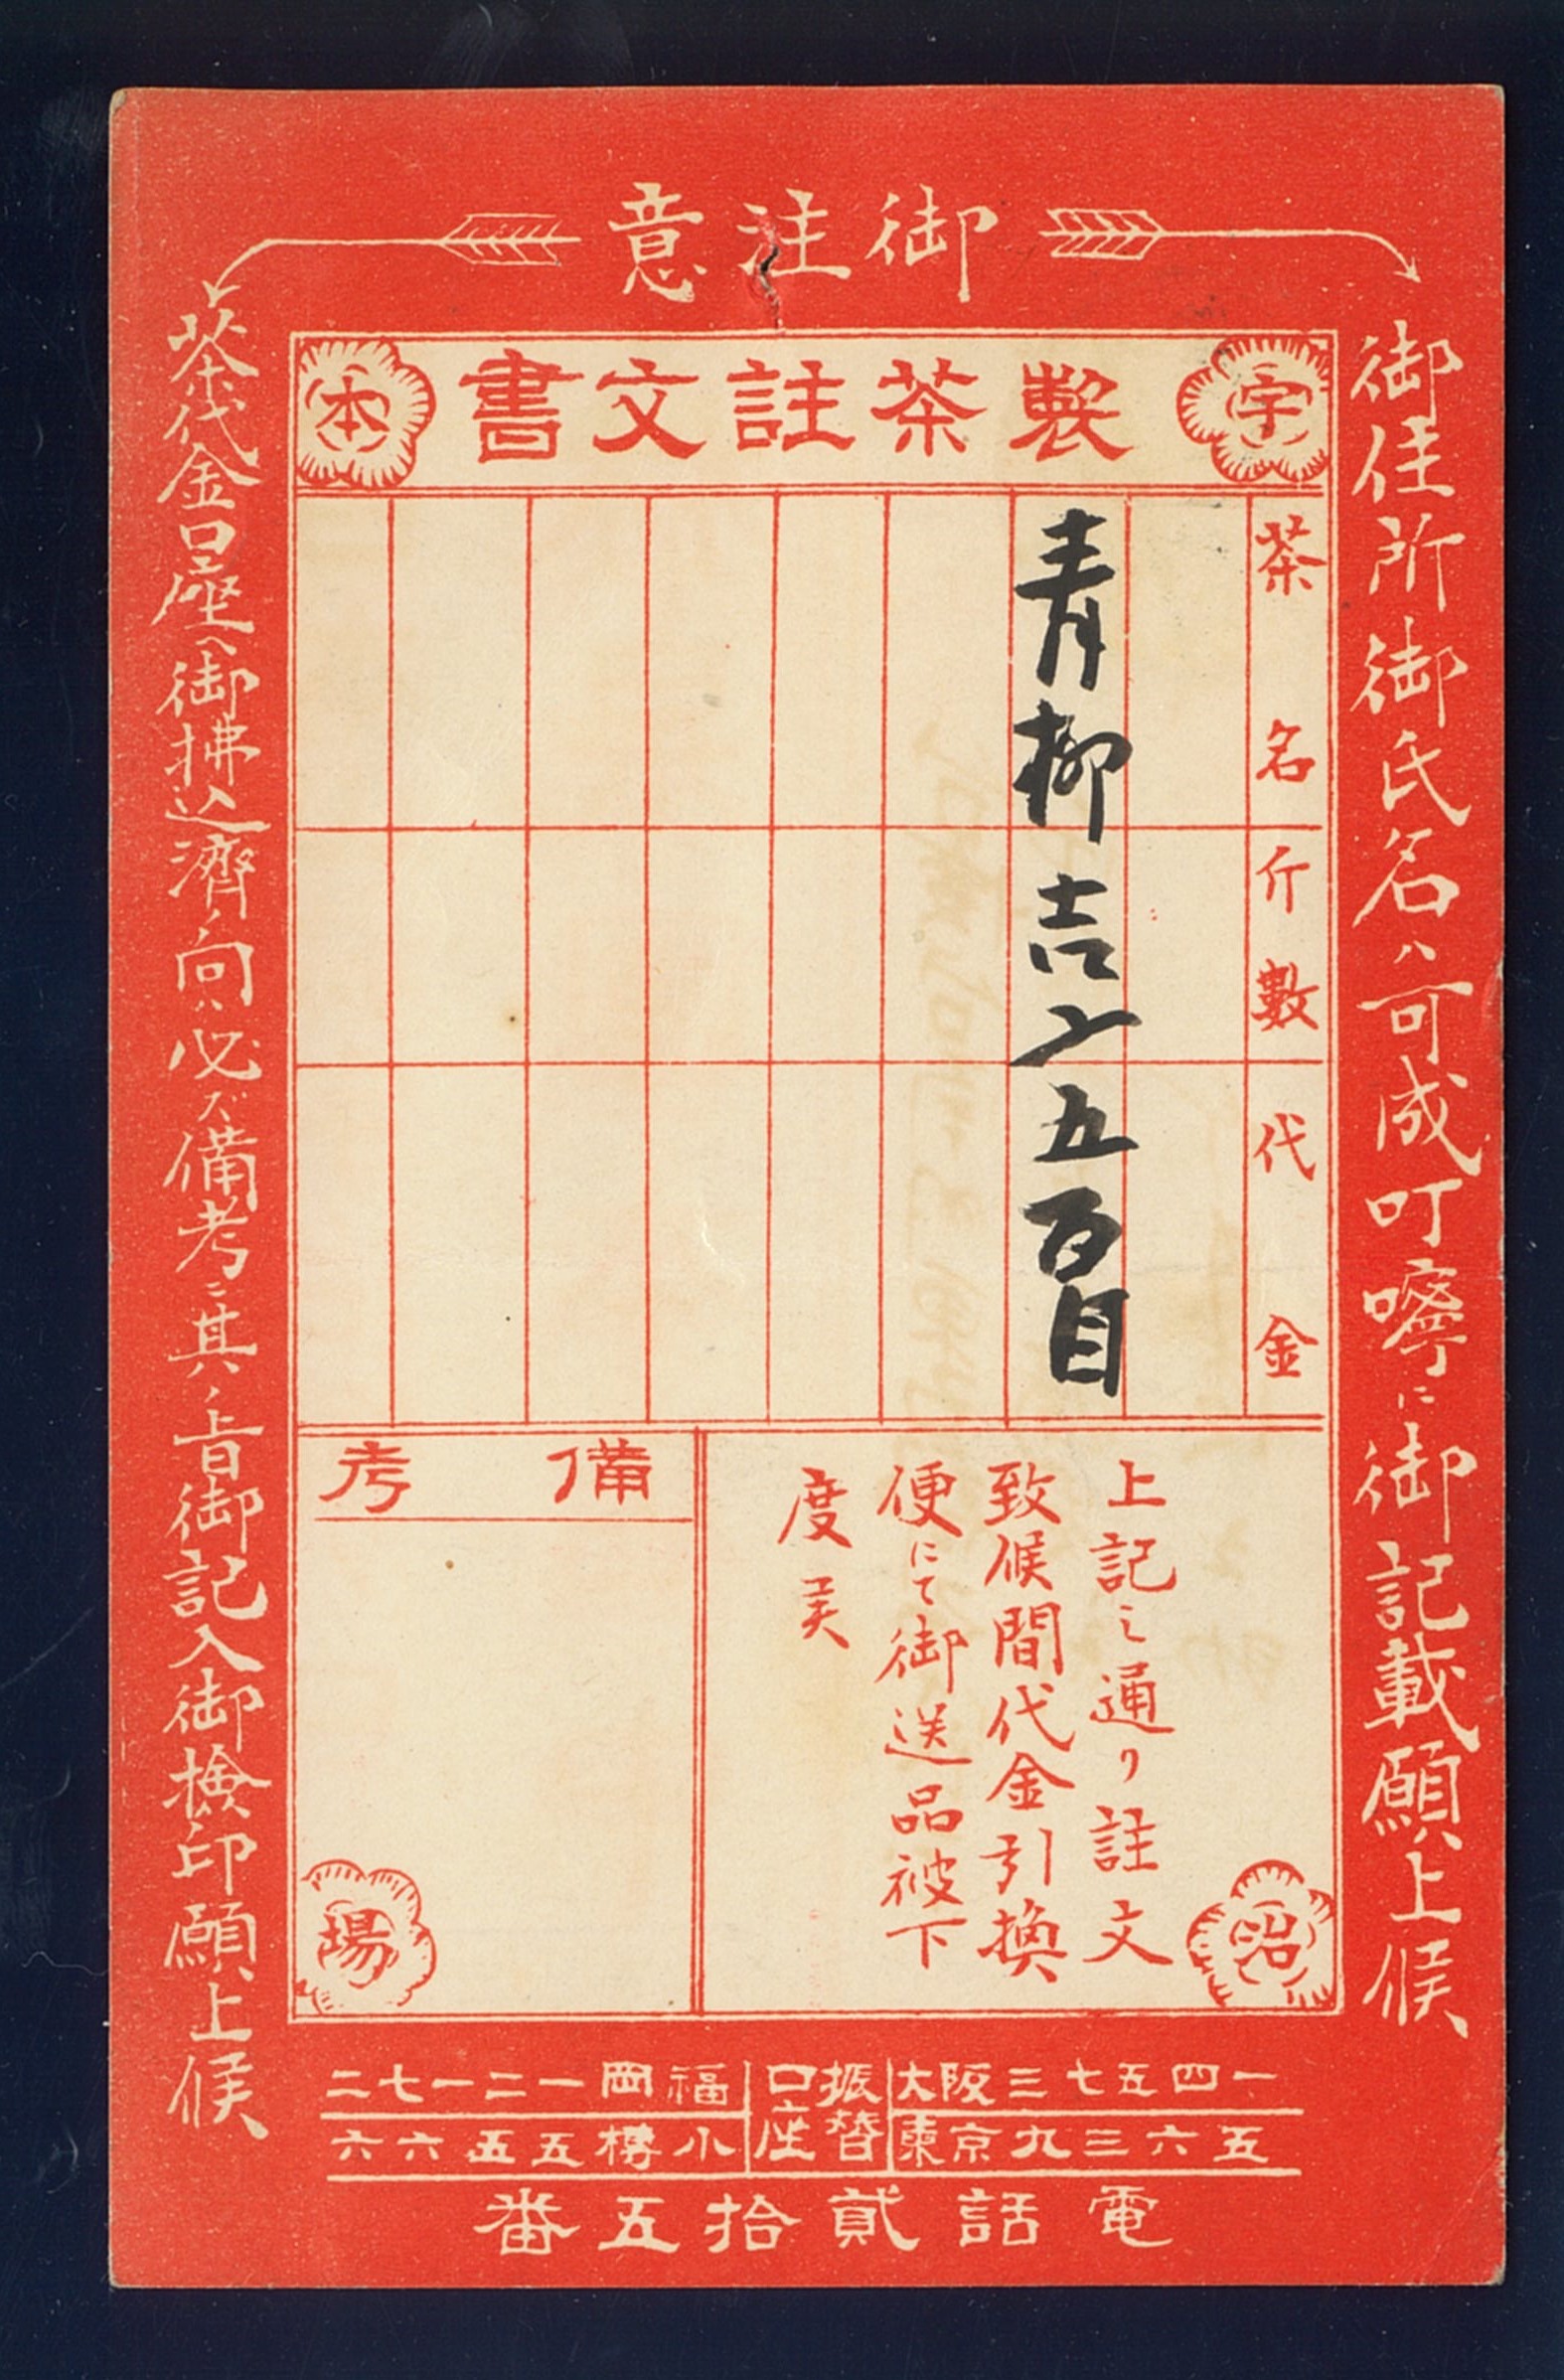 御注意
御住所御氏名ハ可成叮嚀ニ御記載願上候
茶代金口座ヘ御拂込濟ノ向ハ必ズ備考ニ其ノ旨御記入御検印願上候
製茶註文書
宇
本
茶名
斤数
代金
青柳
五百目
上記之通リ註文
致候間代金引換
便にて御送品被下
度候
備考
沼
場
振替口座
大阪三七五四一
東京九三六五
福岡一二一七二
小樽五五六六
電話貳拾五番